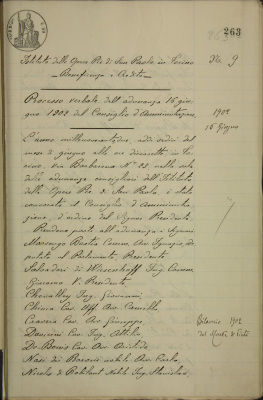 263
Istituto delle Opere Pie di San Paolo in Torino
Beneficenza e Credito
No 9
Processo verbale dell'adunanza 16 giu-
gno 1902 del Consiglio d'Amministrazione
1902
16 Giugno
L'anno millenovecentodue, addì sedici del
mese di giugno alle ore diciassette in To-
rino, via Barbaroux No nella sala
delle adunanze consigliari dell'Istituto
delle Opere Pie di San Paolo, è stato
convocato il Consiglio d'Amministra-
zione, d'ordine del Signor Presidente.
Prendono parte all'adunanza i Signori
Marsengo Bastia Comm. Avv. Ignazio, de-
putato al Parlamento, Presidente
Salvadori di Wiesenhoff Ing. Comm.
Giacomo V. Presidente
Chevalley Ing. Giovanni,
Chiesa Cav. Uff. Avv. Camillo
Cav. Avv. Giuseppe,
Cav. Ing. Attilio
Cav. Avv.
Nasi dei Baroni nobile Avv. Carlo,
Nicolis di Robilant Nobile Ing. Stanislao,
Bilancio 1902
del Monte di Pietà